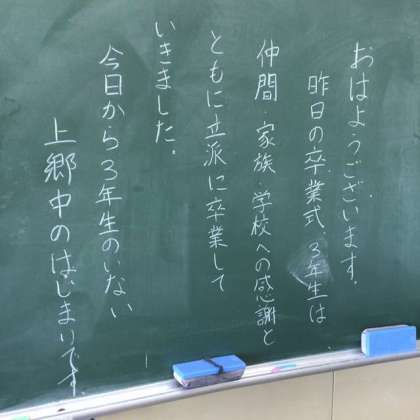 おはようございます。
昨日の卒業式、3年生は
仲間、家族、学校への感謝と
ともに立派に卒業して
いきました。
今日から3年生のいない
上郷中のはじまりです